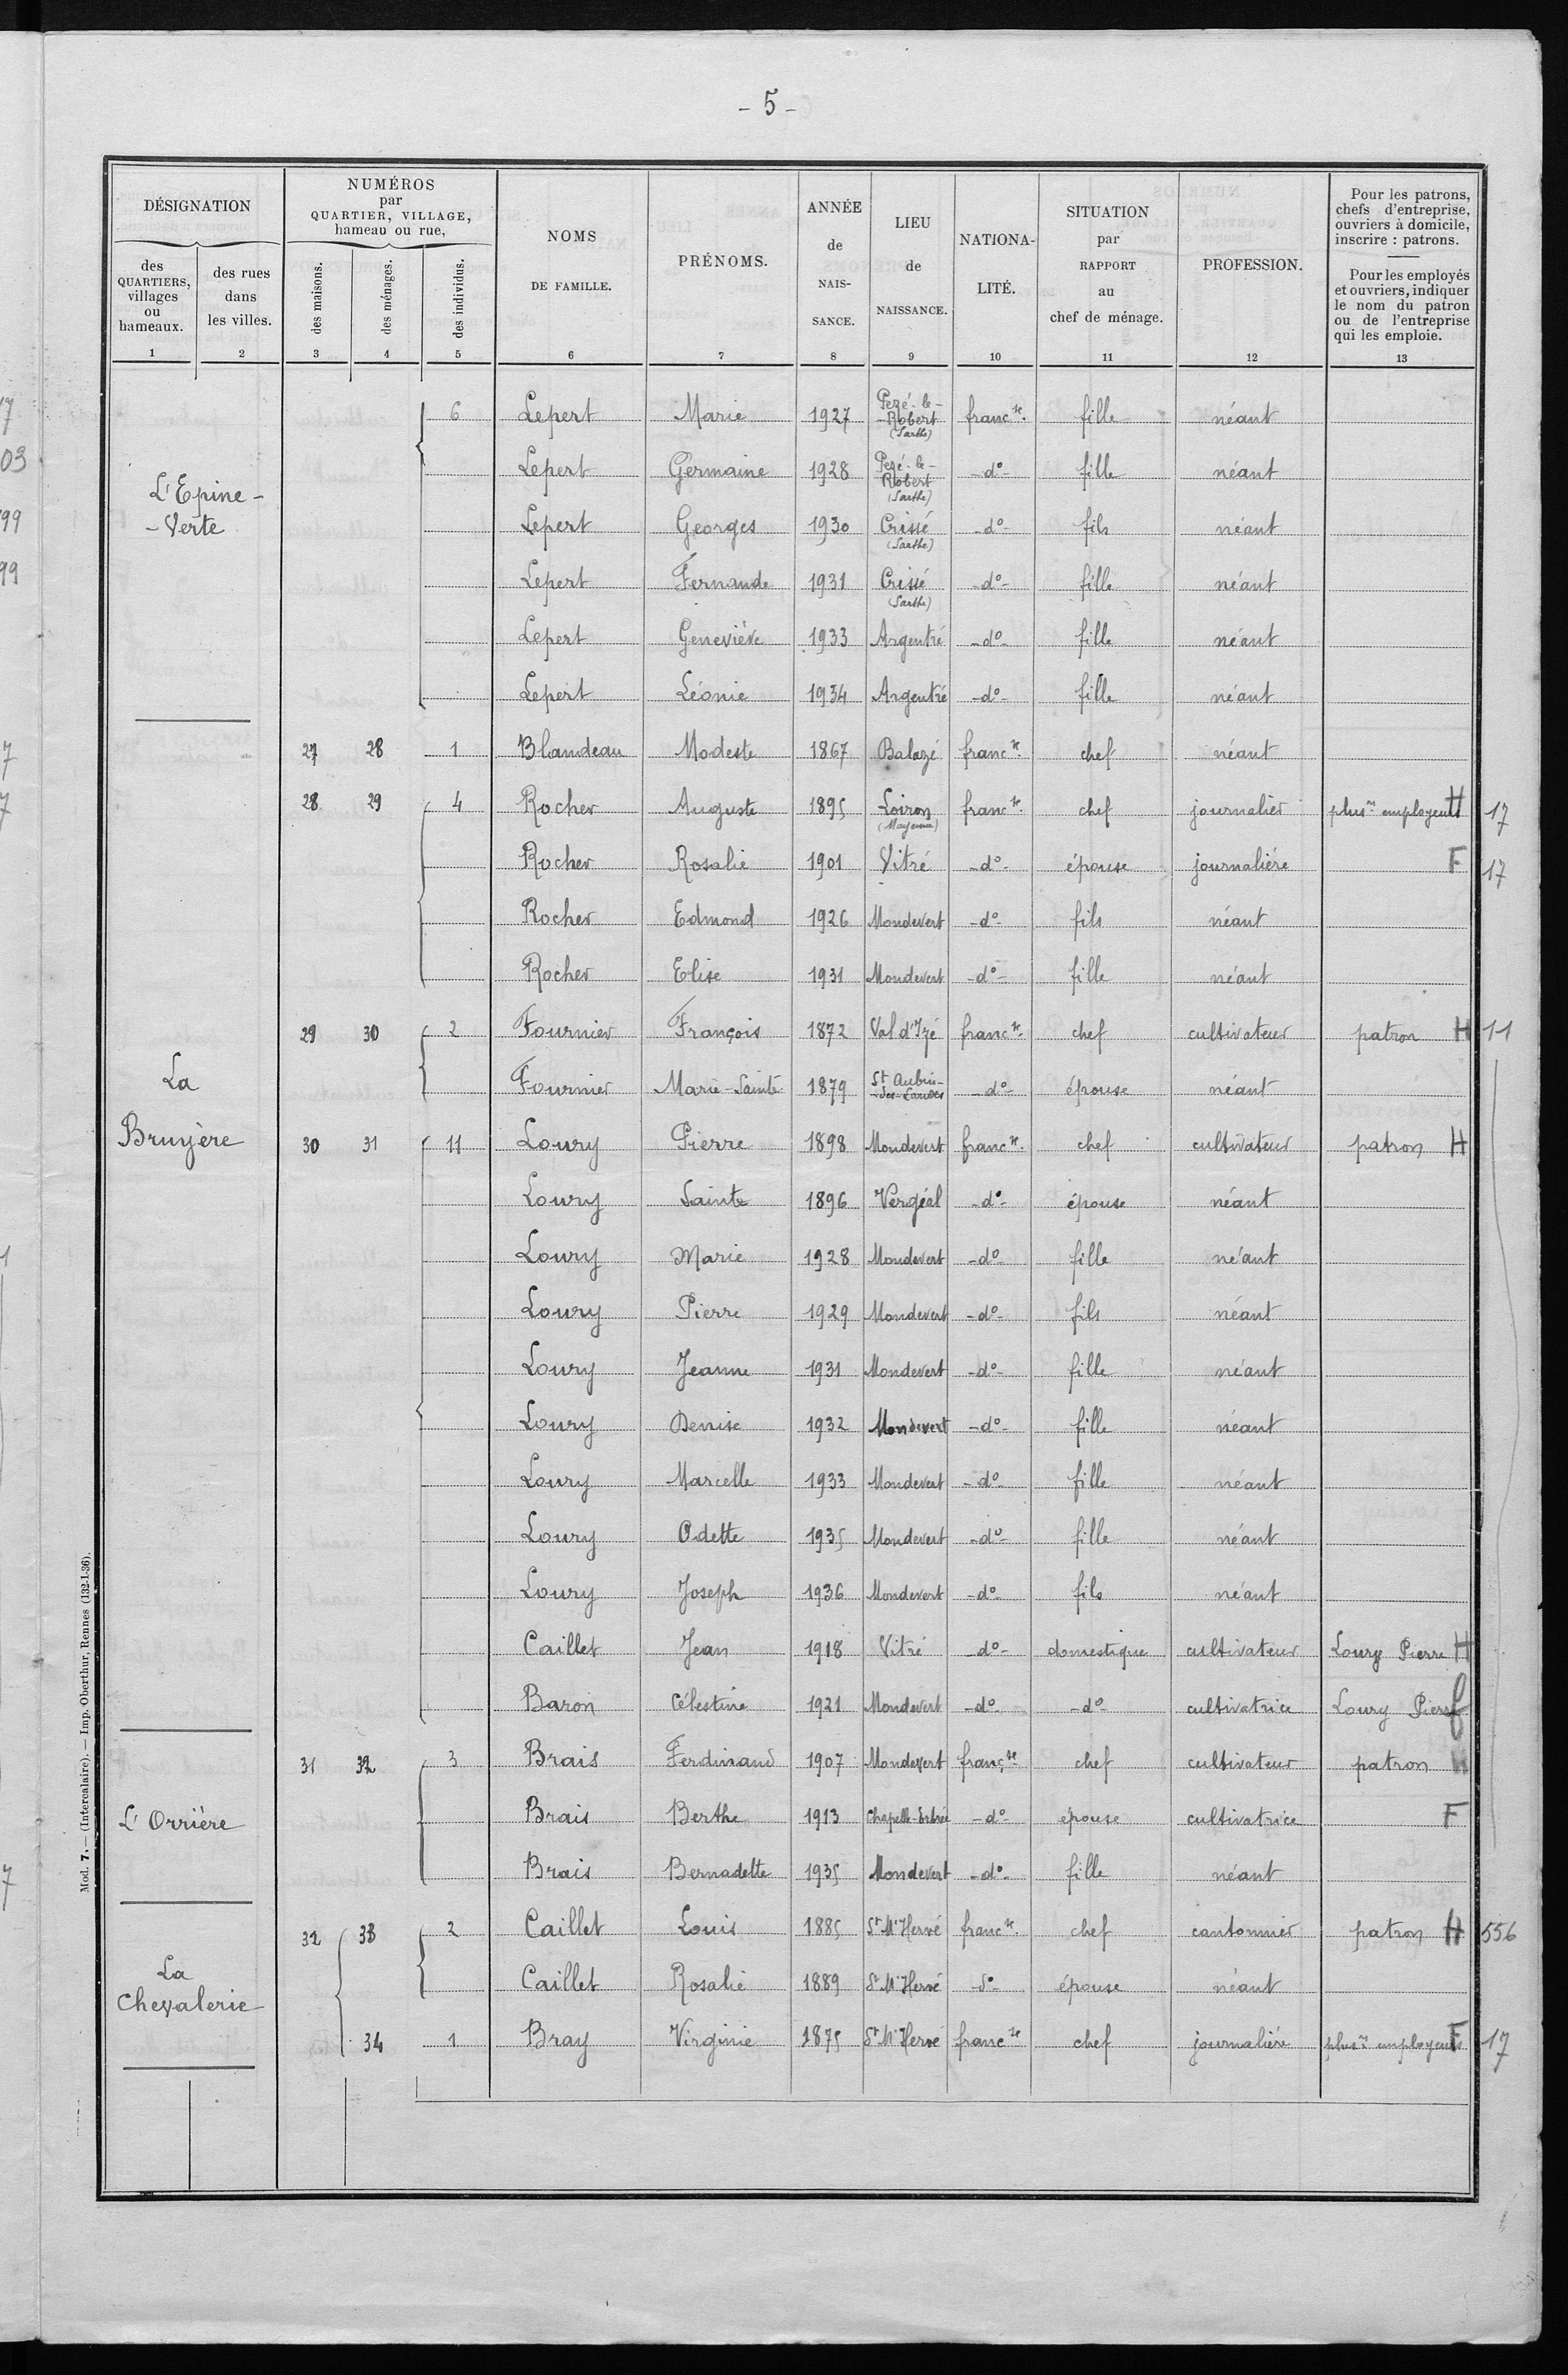 - 5 -
DÉSIGNATION
des QUARTIERS, villages ou hameaux.
des rues dans les villes.
NUMÉROS par QUARTIER, VILLAGE, hameau ou rue,
des maisons.
des ménages.
des individus.
NOMS DE FAMILLE.
PRÉNOMS.
ANNÉE de NAIS-SANCE.
LIEU de NAISSANCE.
NATIONA-LITÉ.
SITUATION par RAPPORT au chef de ménage.
PROFESSION.
Pour les patrons, chefs d'entreprise, ouvriers à domicile, inscrire : patrons.
Pour les employés et ouvriers, indiquer le nom du patron ou de l'entreprise qui les emploie.
1 2 3 4 5 6 7 8 9 10 11 12 13
6 Lepert Marie 1927 Pezé-le-Robert (Sarthe) franc se. fille néant
Lepert Germaine 1928 Pezé-le-Robert (Sarthe) -do- fille néant
L'Epine-
-Verte
Lepert Georges 1930 Crissé (Sarthe) -do- fils néant
Lepert Fernande 1931 Crissé (Sarthe) -do- fille néant
Lepert Geneviève 1933 Argentré -do- fille néant
Lepert Léonie 1934 Argentré -do- fille néant
27 28 1 Blandeau Modeste 1867 Balazé franc se. chef néant
28 29 4 Rocher Auguste 1895 Loiron (Mayenne) franc se. chef journalier plusrs employeurs H 17
Rocher Rosalie 1901 Vitré -do- épouse journalière F 17
Rocher Edmond 1926 Mondevert -do- fils néant
Rocher Elise 1931 Mondevert -do- fille néant
29 30 2 Fournier François 1872 Val d'Izé franc se. chef cultivateur patron H 11
La
Bruyère
Fournier Marie-Sainte 1879 St Aubin-des-Landes -do- épouse néant
30 31 11 Loury Pierre 1898 Mondevert franc se. chef cultivateur patron H
Loury Sainte 1896 Vergéal -do- épouse néant
Loury Marie 1928 Mondevert -do- fille néant
Loury Pierre 1929 Mondevert -do- fils néant
Loury Jeanne 1931 Mondevert -do- fille néant
Loury Denise 1932 Mondevert -do- fille néant
Loury Marcelle 1933 Mondevert -do- fille néant
Loury Odette 1935 Mondevert -do- fille néant
Loury Joseph 1936 Mondevert -do- fils néant
Caillet Jean 1918 Vitré -do- domestique cultivateur Loury Pierre H
Baron Célestine 1921 Mondevert -do- -do- cultivatrice Loury Pierre f
31 32 3 Brais Ferdinand 1907 Mondevert franç se. chef cultivateur patron H
L'Orrière
Brais Berthe 1913 Chapelle-Erbrée -do- épouse cultivatrice F
Brais Bernadette 1935 Mondevert -do- fille néant
32 33 2 Caillet Louis 1885 St M'Hervé franc se. chef cantonnier patron H 556
La
Chevalerie
Caillet Rosalie 1889 St M'Hervé -do- épouse néant
34 1 Bray Virginie 1875 St M'Hervé franc se chef journalière plusrs employeurs F 17
Mod. 7. — (Intercalaire). — Imp. Oberthur, Rennes (132-1-36).